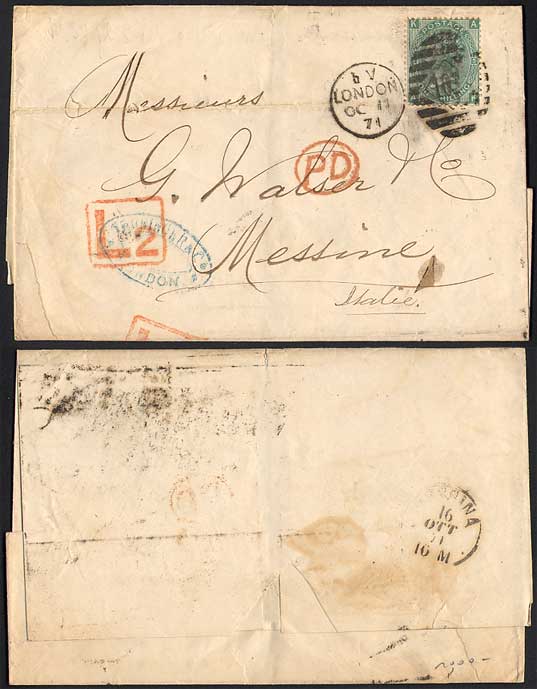 K A
POSTAGE
b V
LONDON
OC 11
71
Messieurs
PD
G. Walser & Co
L2
LONDON
Messine
Italie
MESSINA
16
OTT
71
10 M